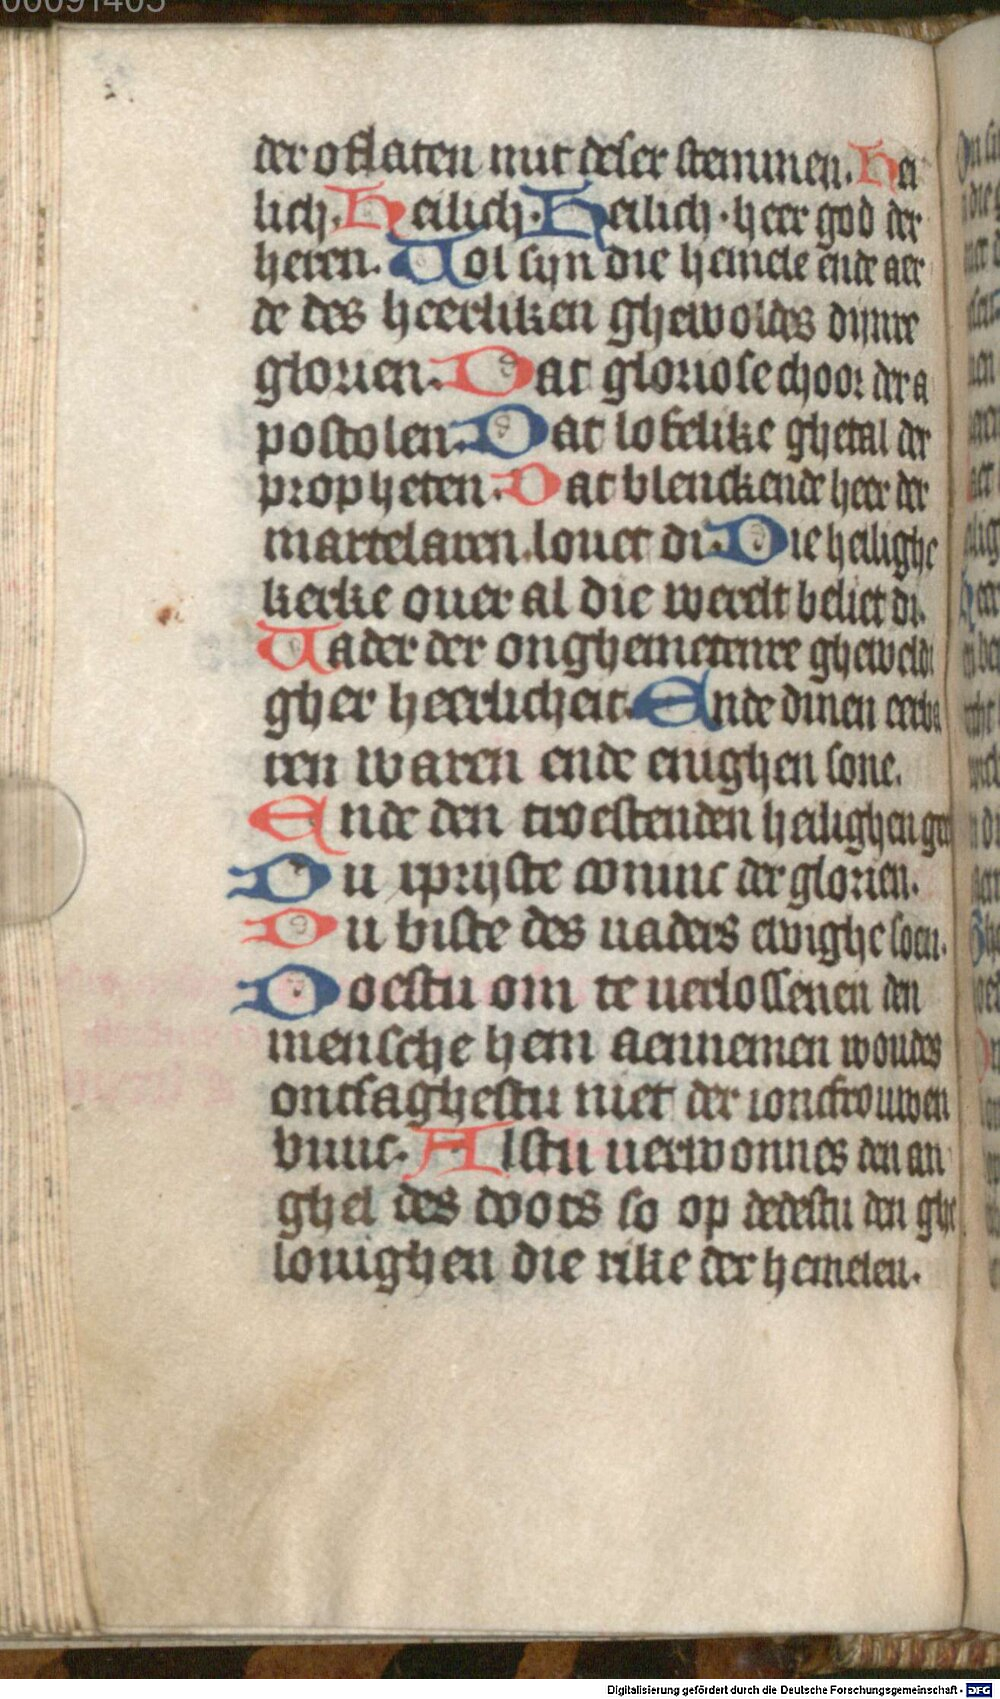 00091405
der oflaten mit deser stemmen. Hei
lich. Heilich. Heilich. heer god der
heren. Uol syn die hemele ende aer
de des heerliken ghewoldes dijnre
glorien. Dat gloriose choor der a
postolen. Dat lofelike ghetal der
propheten. Dat blenckende heer der
martelaren louet di. Die heilighe
kerke ouer al die werelt beliet di.
Uader der onghemetenre gheweldi
gher heerlicheit. Ende dinen eerba
ren waren ende enighen sone.
Ende den troestenden heilighen
Du xpryste coninc der glorien.
Du biste des uaders ewighe soen.
Doestu om te uerlossenen den
mensche hem aennemen woudes
ontsaghestu niet der ioncfrouwen
buuc. Alstu uerwonnes den an
ghel des doots so op dedestu den ghe
louighen die rike der hemelen.
Digitalisierung gefördert durch die Deutsche Forschungsgemeinschaft - DFG